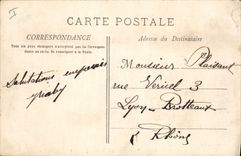 CARTE POSTALE
CORRESPONDANCE
Tous les pays étrangers n'acceptent pas la Correspondance
au recto. Se renseigner à la Poste.
Adresse du Destinataire
Salutations
Monsieur
rue 3
Lyon-Brotteaux
Rhône